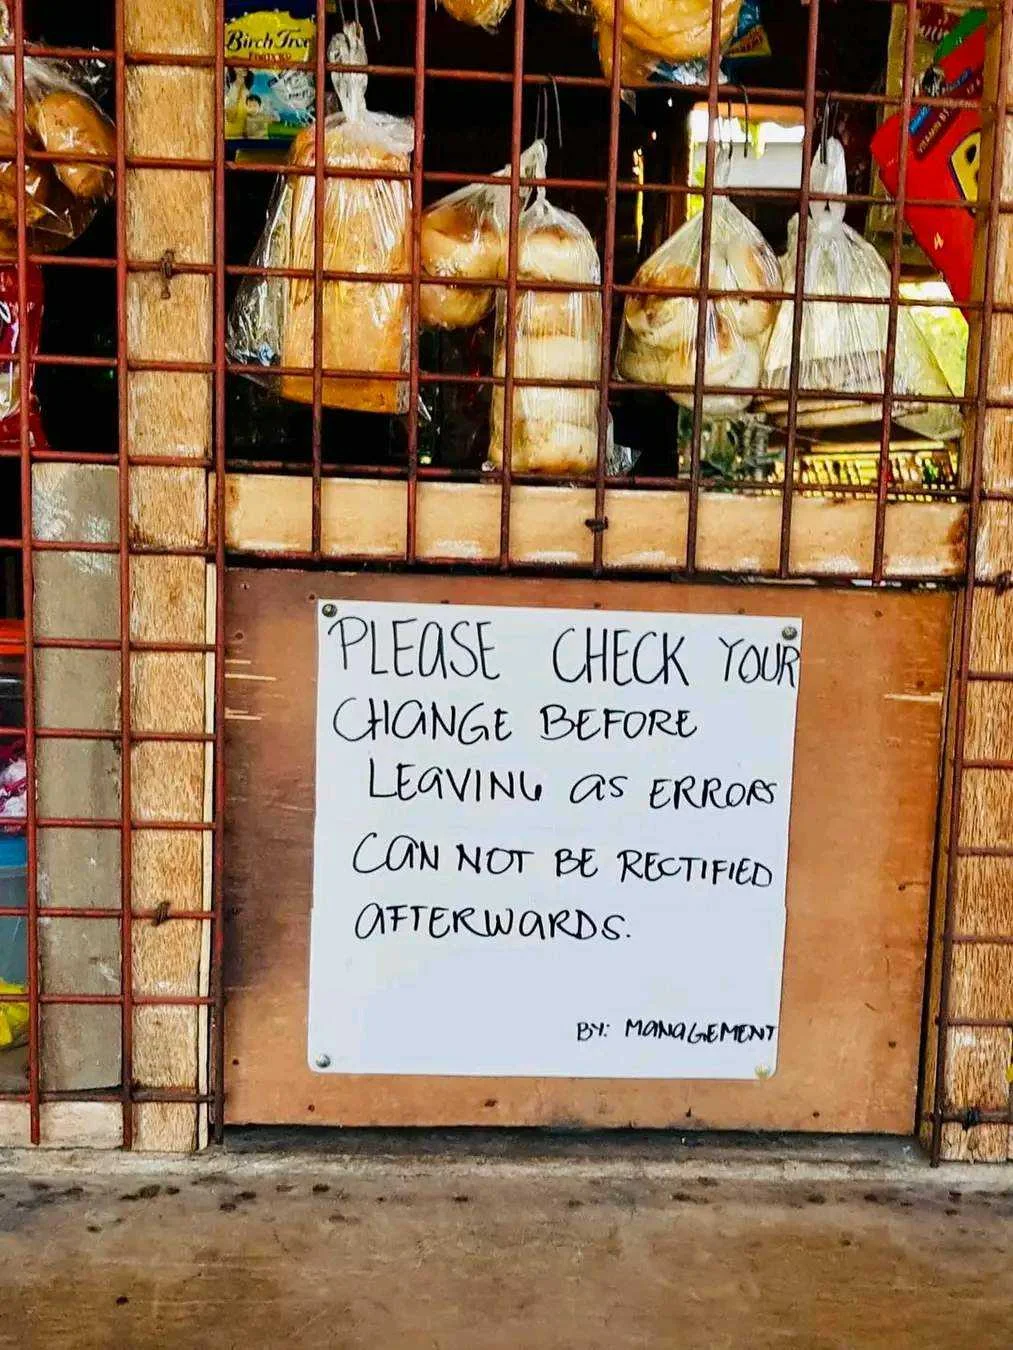 Birch Tree
PLEASE CHECK YOUR
CHANGE BEFORE
LEAVING AS ERRORS
CAN NOT BE RECTIFIED
AFTERWARDS.
BY: MANAGEMENT